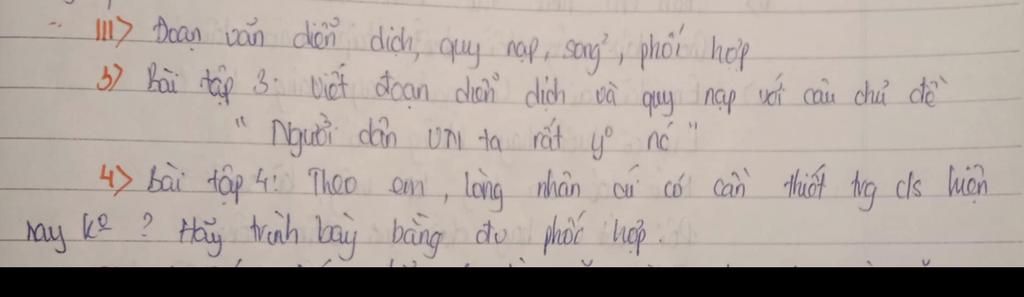 III> Đoạn văn diễn dịch, quy nạp, song², phối hợp
3> Bài tập 3: Viết đoạn diễn dịch và quy nạp với câu chủ đề
" Người dân VN ta rất y° nc´ "
4> Bài tập 4: Theo em, lòng nhân ái có cần thiết trg c/s hiện
nay k° ? Hãy trình bày bằng đv phối hợp.